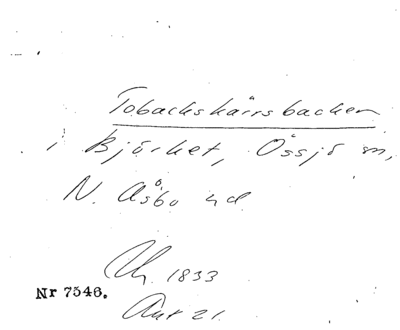 Tobackskärrsbacken
i Björket, Össjö sn,
N. Åsbo hd
Ch. 1833
Nr 7546.
Akt 21.